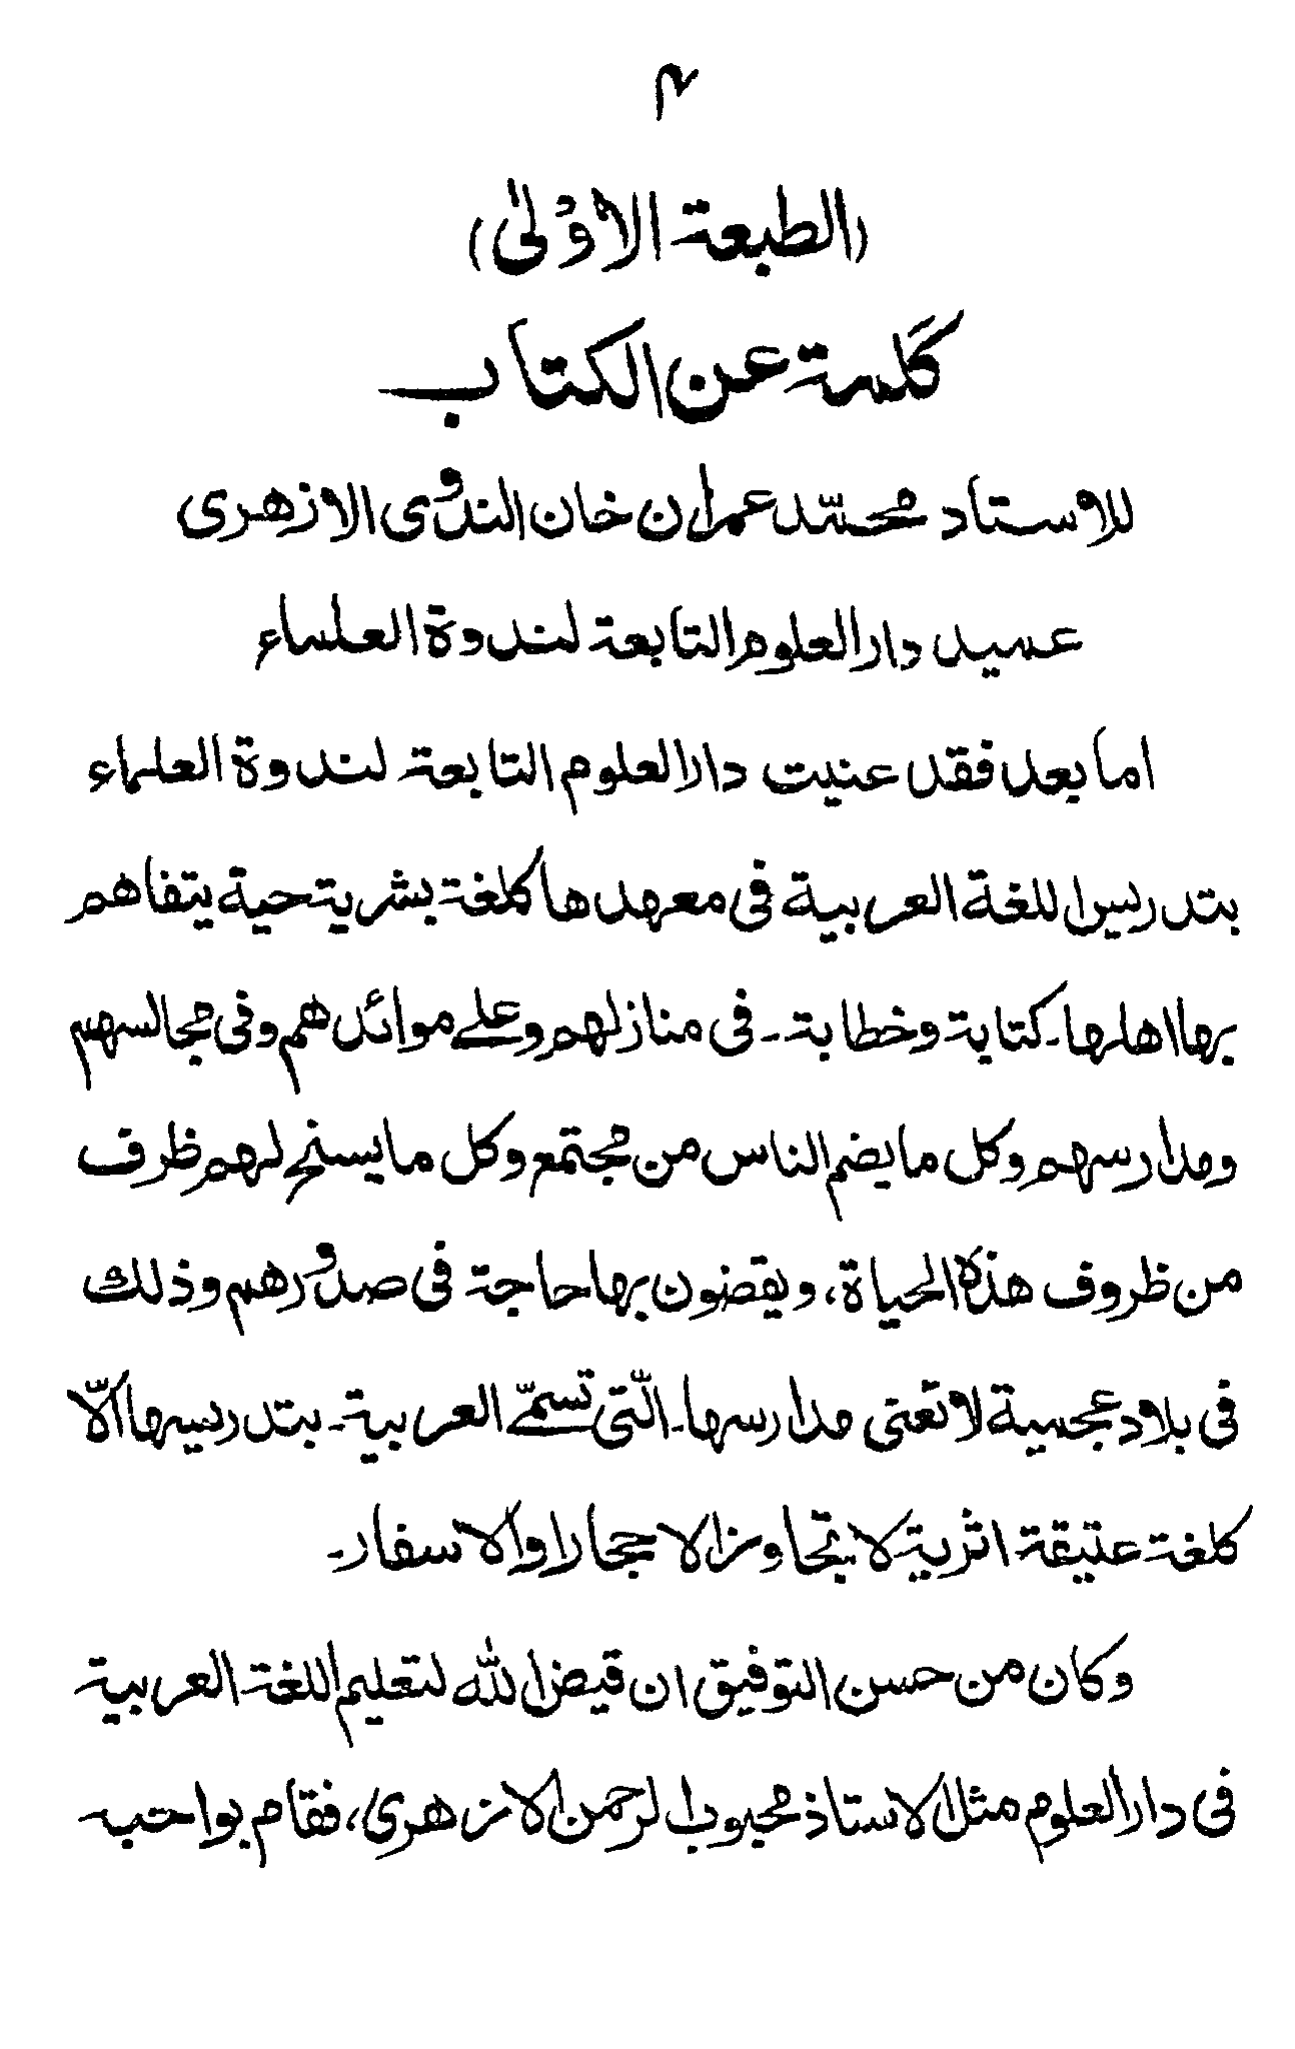 ۴
(الطبعة الاوْلىٰ)
كَلمة عن الكتاب
للاستاد محمّد عمران خان الندوى الازهرى
عميد دار العلوم التابعة لندوة العلماء
اما بعد فقد عنيت دار العلوم التابعة لندوة العلماء
بتدريس اللغة العربية فى معهدها كلغة بشرية حية يتفاهم
بها اهلها۔ كتاية وخطابة۔ فى منازلهم وعلے موائدهم وفى مجالسهم
ومدارسهم وكل مايضم الناس من مجتمع وكل مايسنح لهم ظرف
من ظروف هذه الحياة، ويقضون بها حاجة فى صدورهم وذلك
فى بلاد عجمية لا تعنى مدارسها۔ الّتى تسمّے العربية۔ بتدريسها الّا
كلغة عتيقة اثرية لا تتجاوز الاحجار والاسفار۔
وكان من حسن التوفيق ان قيض الله لتعليم اللغة العربية
فى دار العلوم مثل الاستاذ محبوب الرحمن الازهرى، فقام بواحتبه